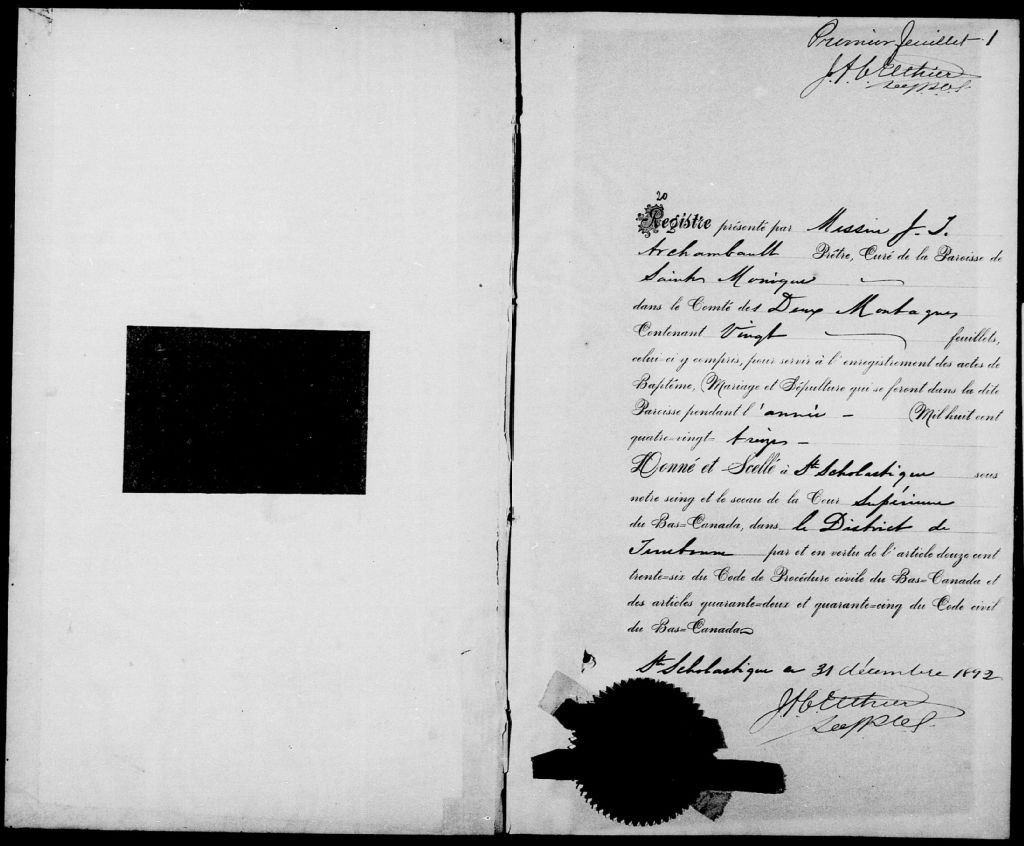 Premier feuillet 1
J. A. C. Ethier
20
Registre présenté par Messire J. T.
Archambault Prêtre, Curé de la Paroisse de
Sainte Monique
dans le Comté des Deux Montagnes
Contenant Vingt feuillets,
celui-ci y compris, pour servir à l'enregistrement des actes de
Baptême, Mariage et Sépulture qui se feront dans la dite
Paroisse pendant l'année – Mil huit cent
quatre-vingt- treize –
Donné et Scellé à Ste Scholastique sous
notre seing et le sceau de la Cour Supérieure
du Bas=Canada, dans le District de
Terrebonne par et en vertu de l'article douze cent
trente=six du Code de Procédure civile du Bas=Canada et
des articles quarante=deux et quarante=cinq du Code civil
du Bas=Canada
Ste Scholastique ce 31 décembre 1892
J. A. C. Ethier